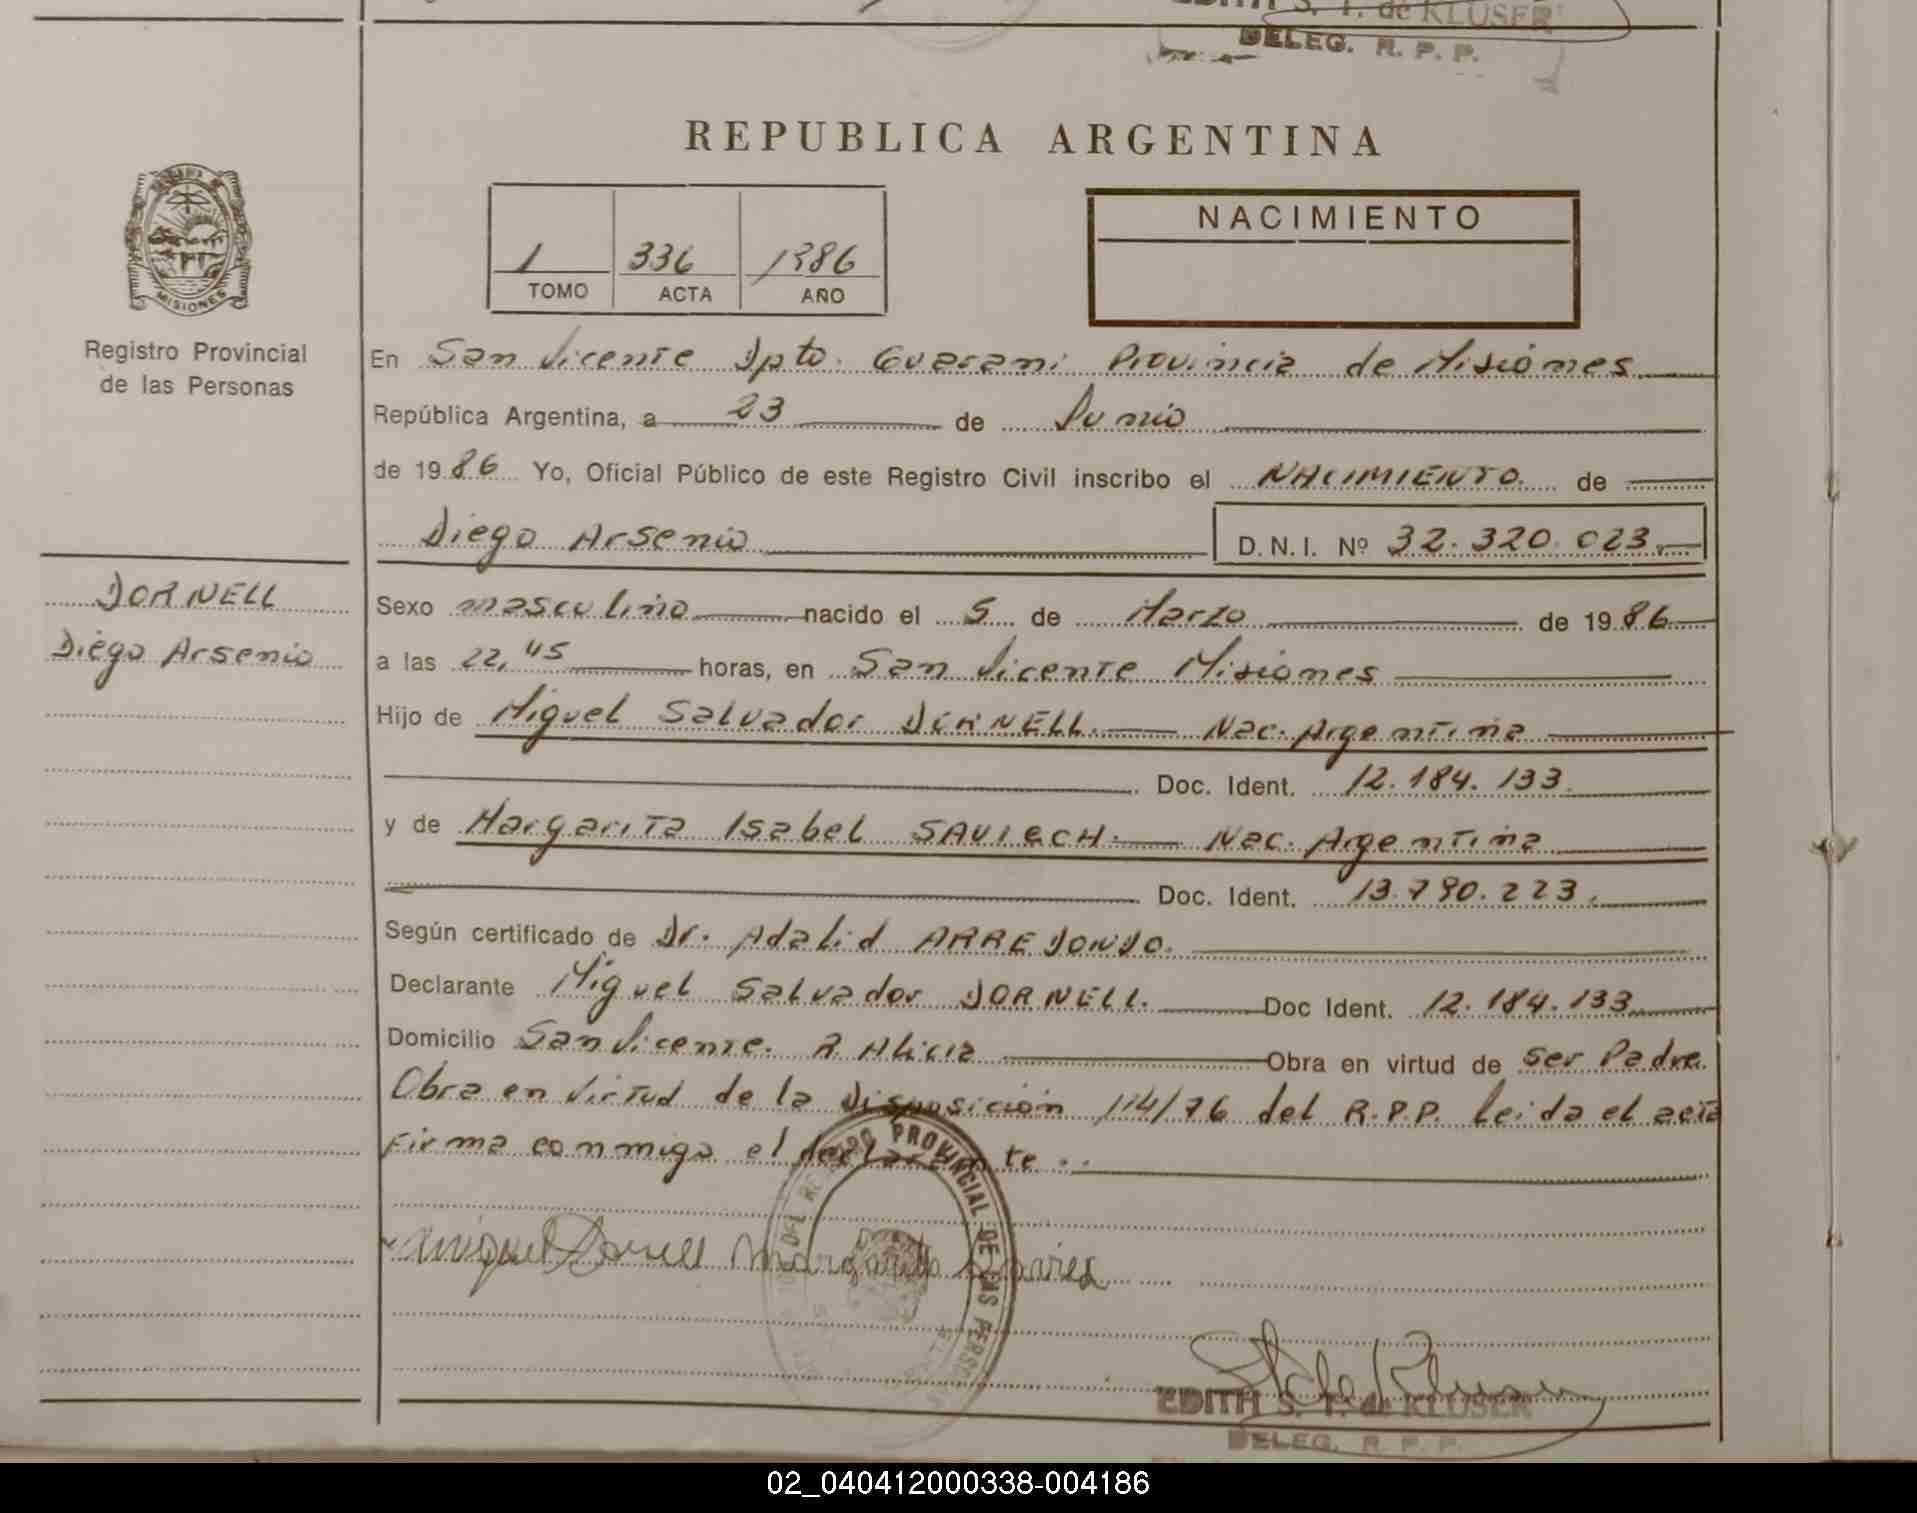 EDITH S. T. de KLUSER
DELEG. R. P. P.
REPUBLICA ARGENTINA
1 336 1986
TOMO ACTA AÑO
NACIMIENTO
MISIONES
Registro Provincial
de las Personas
En San Vicente Dpto. Guarani Provincia de Misiones
República Argentina, a 23 de Junio
de 1986 Yo, Oficial Público de este Registro Civil inscribo el NACIMIENTO de
Diego Arsenio D.N.I. Nº 32.320.023
DORNELL
Diego Arsenio
Sexo masculino nacido el 5 de Marzo de 1986
a las 22,45 horas, en San Vicente Misiones
Hijo de Miguel Salvador DORNELL. Nac. Argentina
Doc. Ident. 12.184.133.
y de Margarita Isabel Nac. Argentina
Doc. Ident. 13.790.223.
Según certificado de Dr. Adalid ARREDONDO.
Declarante Miguel Salvador DORNELL. Doc Ident. 12.184.133
Domicilio San Vicente. P. Alicia Obra en virtud de ser Padre.
Obra en virtud de la Disposición 114/76 del R.P.P. Leida el acta
Firma conmigo el declarante..
DEL REGISTRO PROVINCIAL DE LAS PERSONAS
Miguel Dornell Margarita
EDITH S. T. de KLUSER
DELEG. R. P. P.
02_040412000338-004186